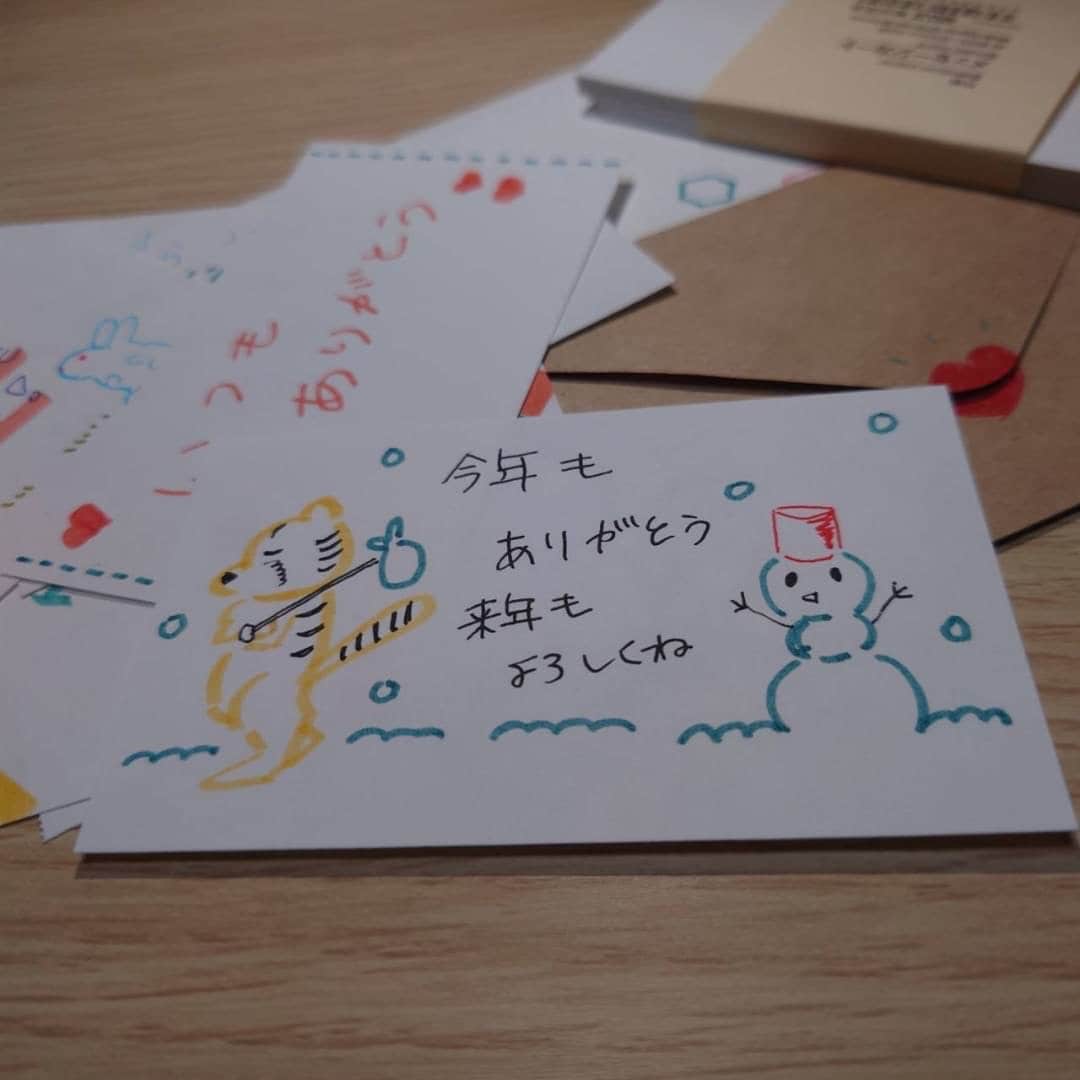 今年も
ありがとう
来年も
よろしくね
いつも
ありがとう